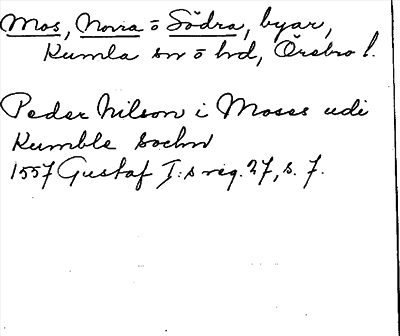 Mos, Norra o Södra, byar,
Kumla sn o hd, Örebro l.
Peder Nilson i Moses udi
Kumble sochn
1557 Gustaf I:s reg. 27, s. 7.